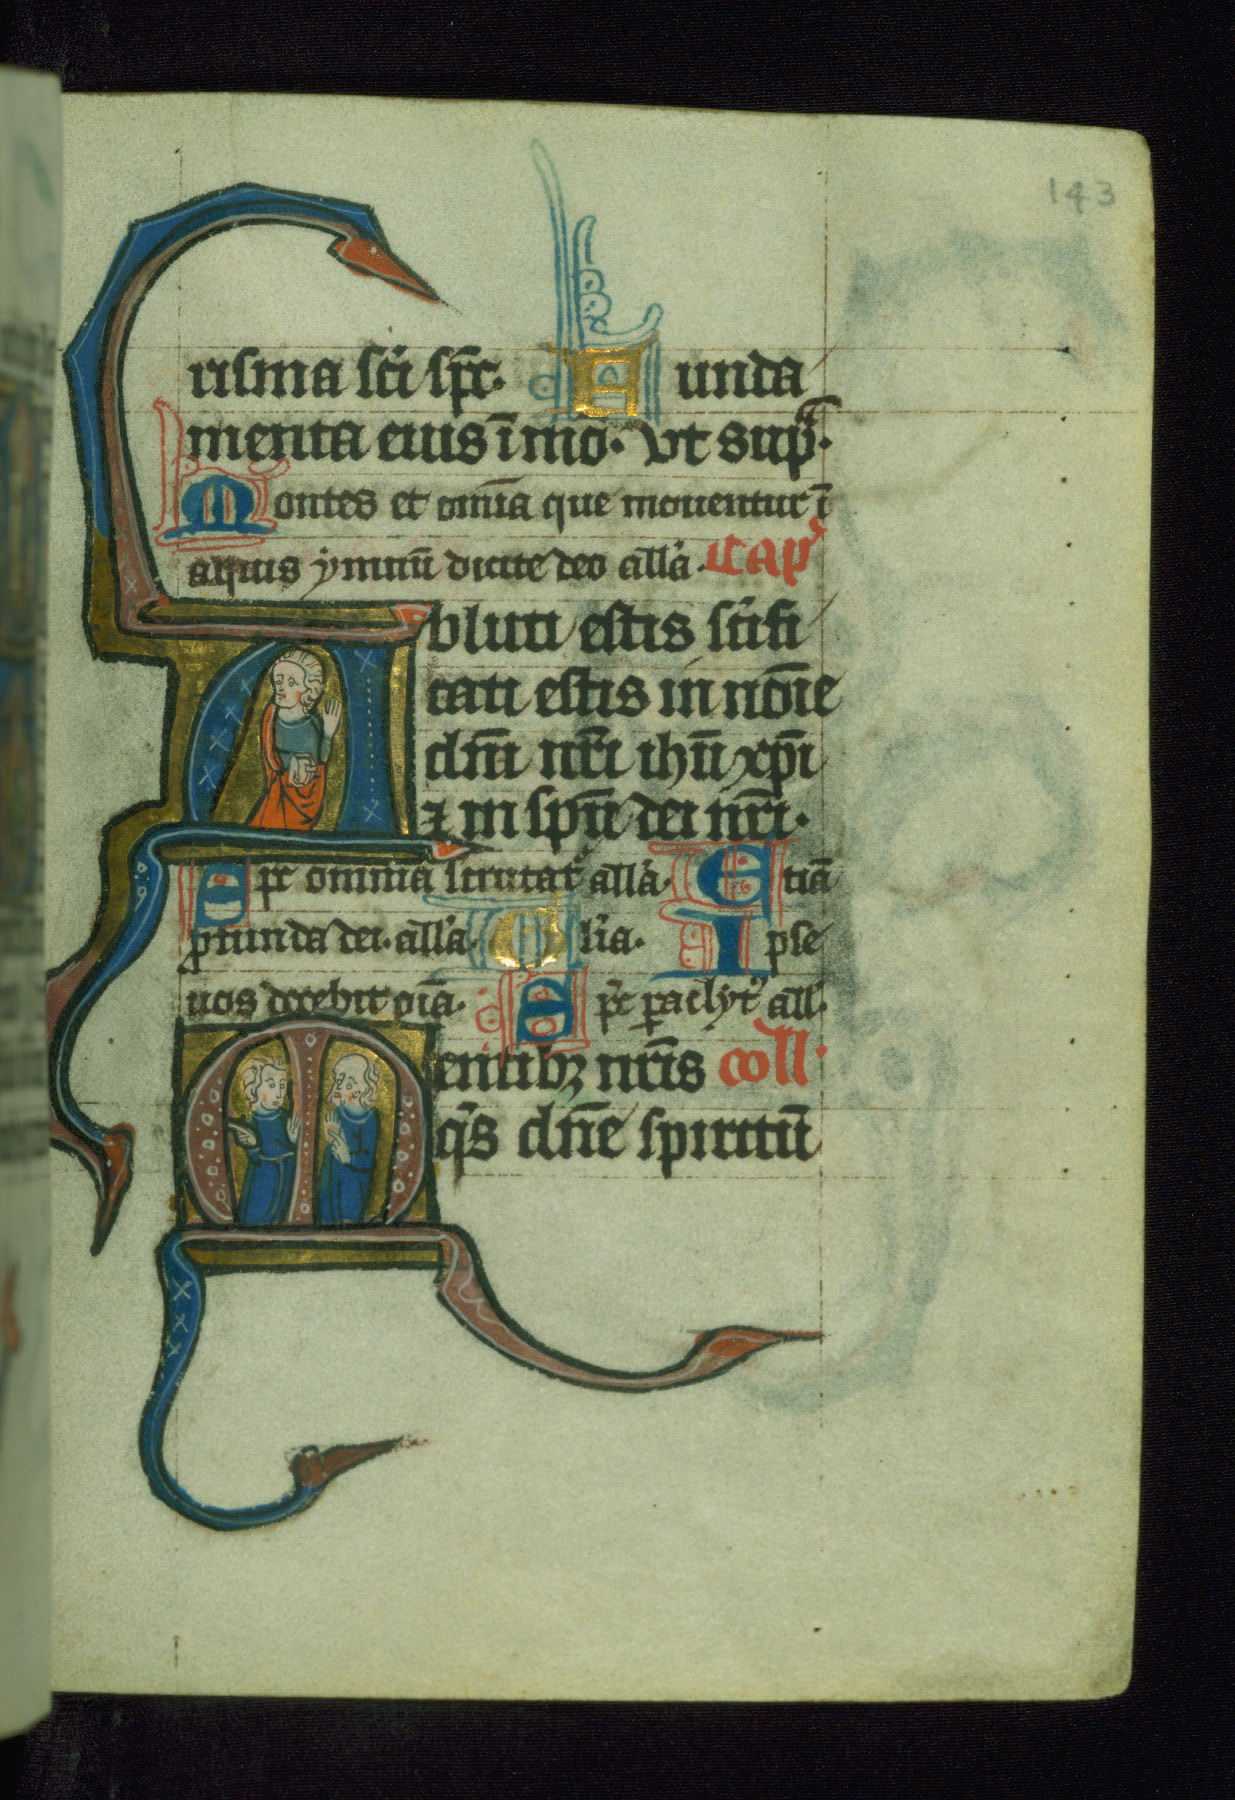 143
risma sc̄i sp̄c. Funda
menta eius ī mo. vt sup̄.
Montes et om̄ia que mouentur ī
aquis ymnū dicite deo all'a. Cap'
Abluti estis sc̄ifi
cati estis in noı̄e
dn̄i nr̄i ihū xp̄i
⁊ in sp̄u dei nr̄i.
Sp̄c omnia scrutat' all'a. Etiā
ꝓfunda dei. all'a. Gl'ia. Ipse
uos docebit oı̄a. Sp̄c paclyt' all'.
Mentibꝫ nr̄is coll'.
q̄s dn̄e spiritū